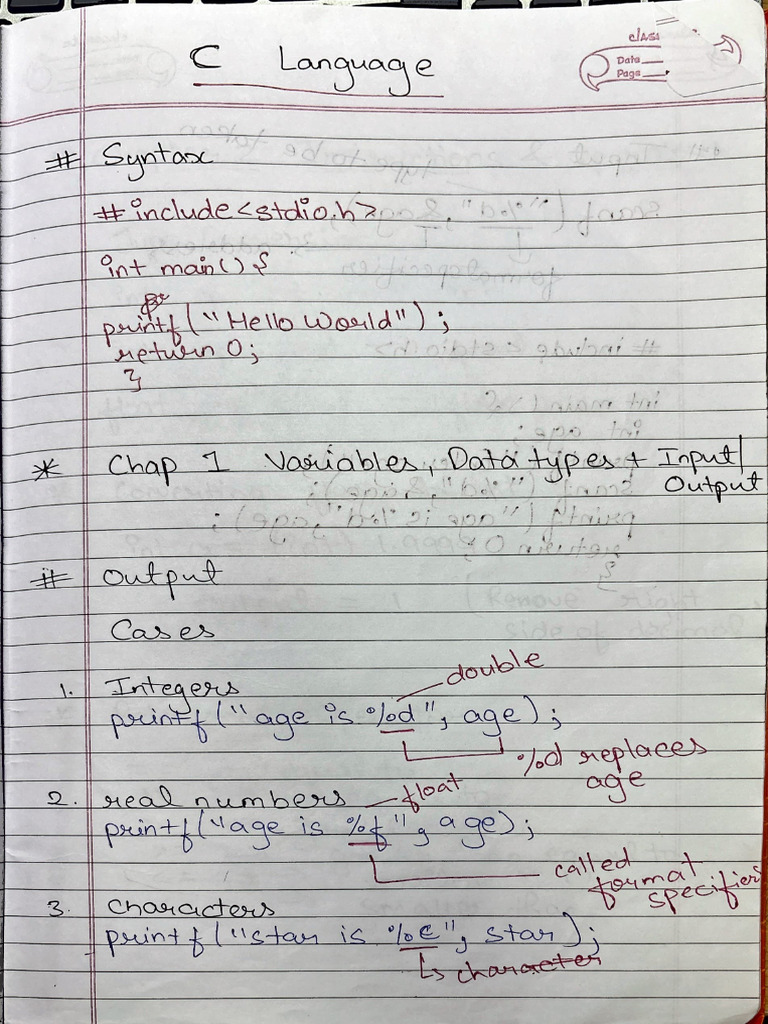 C Language
CLASS
Date
Page
# Syntax
#include<stdio.h>
int main() {
printf("Hello World");
return 0;
}
* Chap 1 Variables, Data types + Input/
Output
# Output
Cases
double
1. Integers
printf("age is %d", age);
%d replaces
age
2. real numbers float
printf("age is %f", age);
called
format
specifier
3. characters
printf("star is %c", star);
↳ character